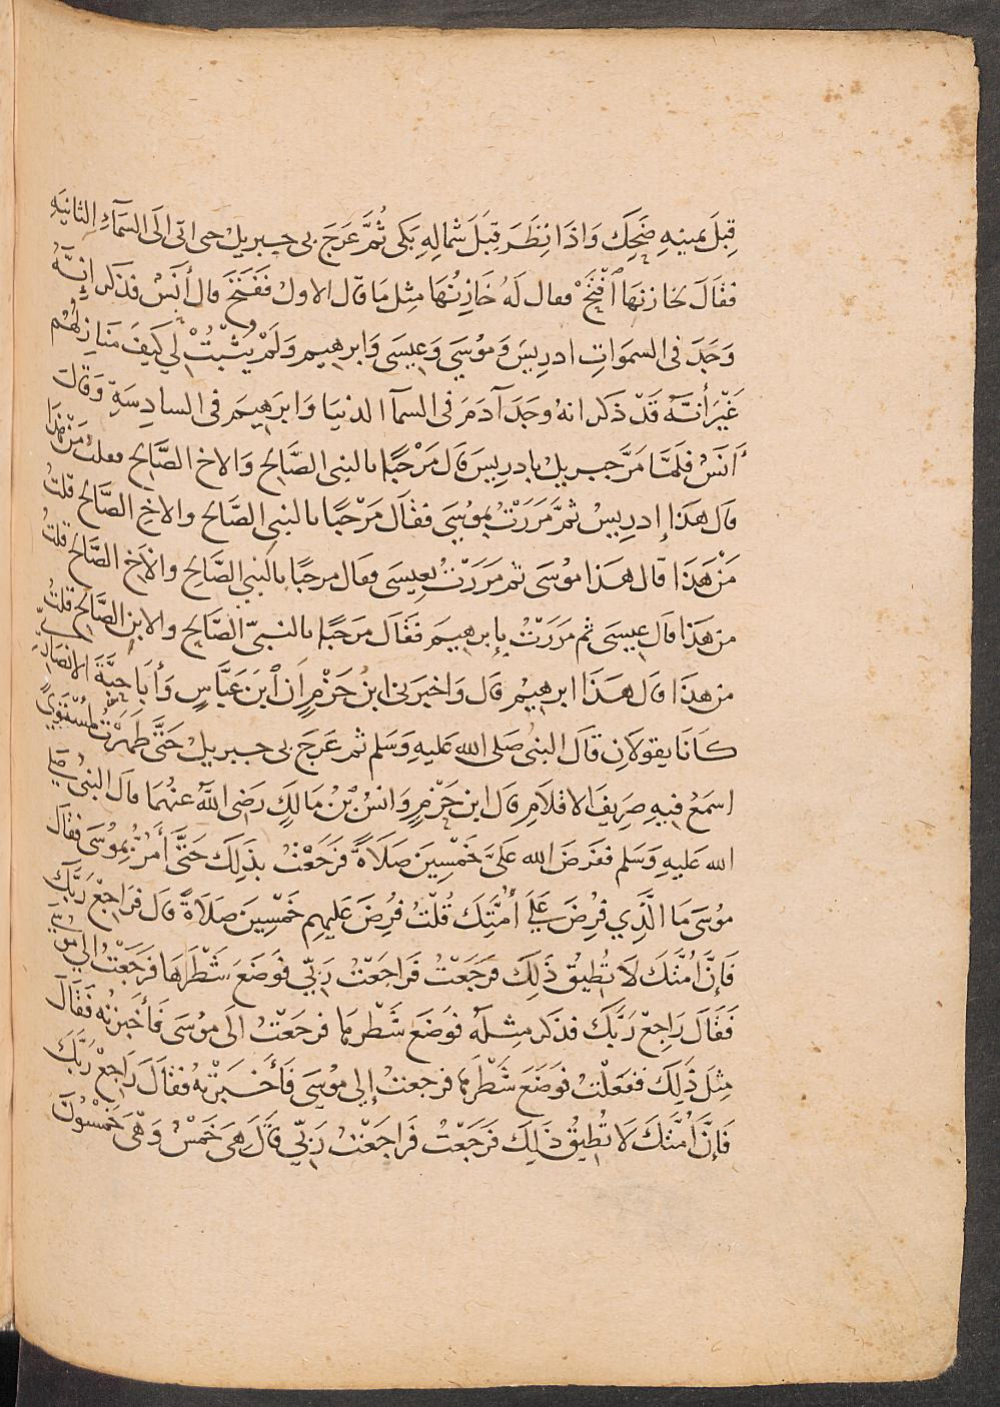 قِبَلَ يَمينِهِ ضَحِكَ وَاذَا نظَرَ قِبَلَ شمالِهِ بَكى ثُمَّ عَرَجَ بى جبريل حتى اتى الَى السمآءِ الثانيَةِ
فقالَ لخازنهَا افتَحْ فقال لَهُ خَازِنُهَا مِثل مَا قال الاول فَفَتحَ قال أنَسٌ فذكر انَّهُ
وَجَدَ فى السموَاتِ ادرِيسَ وَموُسَى وَعِيسَى وَابرهيم وَلَمْ يُثبتْ لي كَيفَ مَنَازِلُهُم
غَيْرَ أنَّهُ قَدْ ذكر انهُ وجَدَ آدَمَ فى السمآ الدنيَا وَابرَهِيمَ فى السادِسَةِ وَقالَ
أنَسٌ فلَمَّا مَرَّ جبريل بادريسَ قَالَ مَرْحَبًا بالنبى الصَّالح وَالاخ الصَّالح فقلتُ مَنْ هَذَا
قال هَذَا إدرِيسُ ثمَّ مَرَرَتْ بموُسَى فقالَ مَرْحَبًا بالنبى الصَّالح والاخِ الصَّالح قلتُ
مَنْ هَذَا قال هَذا موُسَى ثم مَرَرَتُ بِعِيسَى فقال مرحبًا بالنبي الصَّالِحِ والأَخِ الصَّالح قلتُ
من هَذَا قال عِيسَى ثم مَرَرَتُ بِإبرهيمَ فَقَالَ مَرحَبًا بالنبيّ الصَّالِحِ والابنِ الصَّالِحِ قلتُ
من هذَا قال هَذَا ابرهِيْم قال وَاخبَرَنى ابنُ حَزْمٍ اَن اْبنَ عَبَّاسٍ وَأبَا حبَّةَ الانصَاريَّ
كانَا يقولَانِ قالَ النبيُ صَلى الله عَليهِ وَسَلم ثم عَرَجَ بى جبريل حَتَّى ظَهَرْتُ لمُسْتَوًى
اسمَعُ فيهِ صَرِيفَ الاقلَامِ قال ابن حَزْمٍ وَانسُ بْنُ مَالِكٍ رَضى اللهُ عنهُمَا قالَ النبىُ صَلى
الله عَليهِ وَسَلم ففَرَضَ الله عَلَىَّ خَمْسِينَ صَلَاةً فرَجَعْتُ بذَلِكَ حَتَّى أَمُرَّ بِموُسَى فقالَ
موُسَى مَا الَّذِي فرِضَ عَلَى أُمَّتِكَ قُلْتُ فُرِضَ عَليهِم خَمْسِينَ صَلَاةً قال فَرَاجِعْ رَبَّكَ
فَإنَّ اُمَّتَكَ لَا تُطِيقُ ذَلِكَ فرَجَعْتُ فَراجَعْتُ رَبّي فوَضَعَ شَطْرَهَا فرَجَعْتُ الى موُسَى
فَقَالَ رَاجِعْ رَبَّكَ فذكر مِثلَهُ فوَضَعَ شَطْرَهَا فرجَعْتُ الَى موُسَى فَأخبرتُه فَقَالَ
مِثلَ ذَلِكَ ففعَلْتُ فوَضَعَ شَطْرَهَا فرجعتُ إلى موُسَى فَأخبَرْتهُ فقالَ رَاجِعْ رَبَّكَ
فَإنَّ اُمَّتَكَ لَا تُطِيقُ ذَلِكَ فرَجَعْتُ فَراجَعْتُ رَبّي فقَالَ هيَ خَمْسٌ وَهْيَ خَمْسُونَ